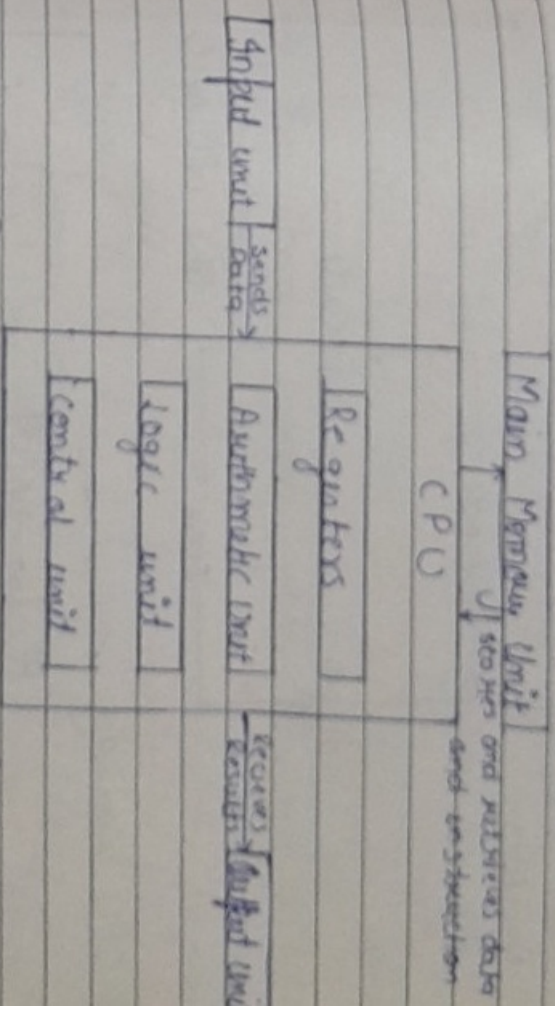 Main Memory Unit
stores and retrieves data
and instruction
CPU
Registers
Input unit
sends
Data
Arithmetic Unit
Recieves
Results
Output Uni
Logic unit
Control unit